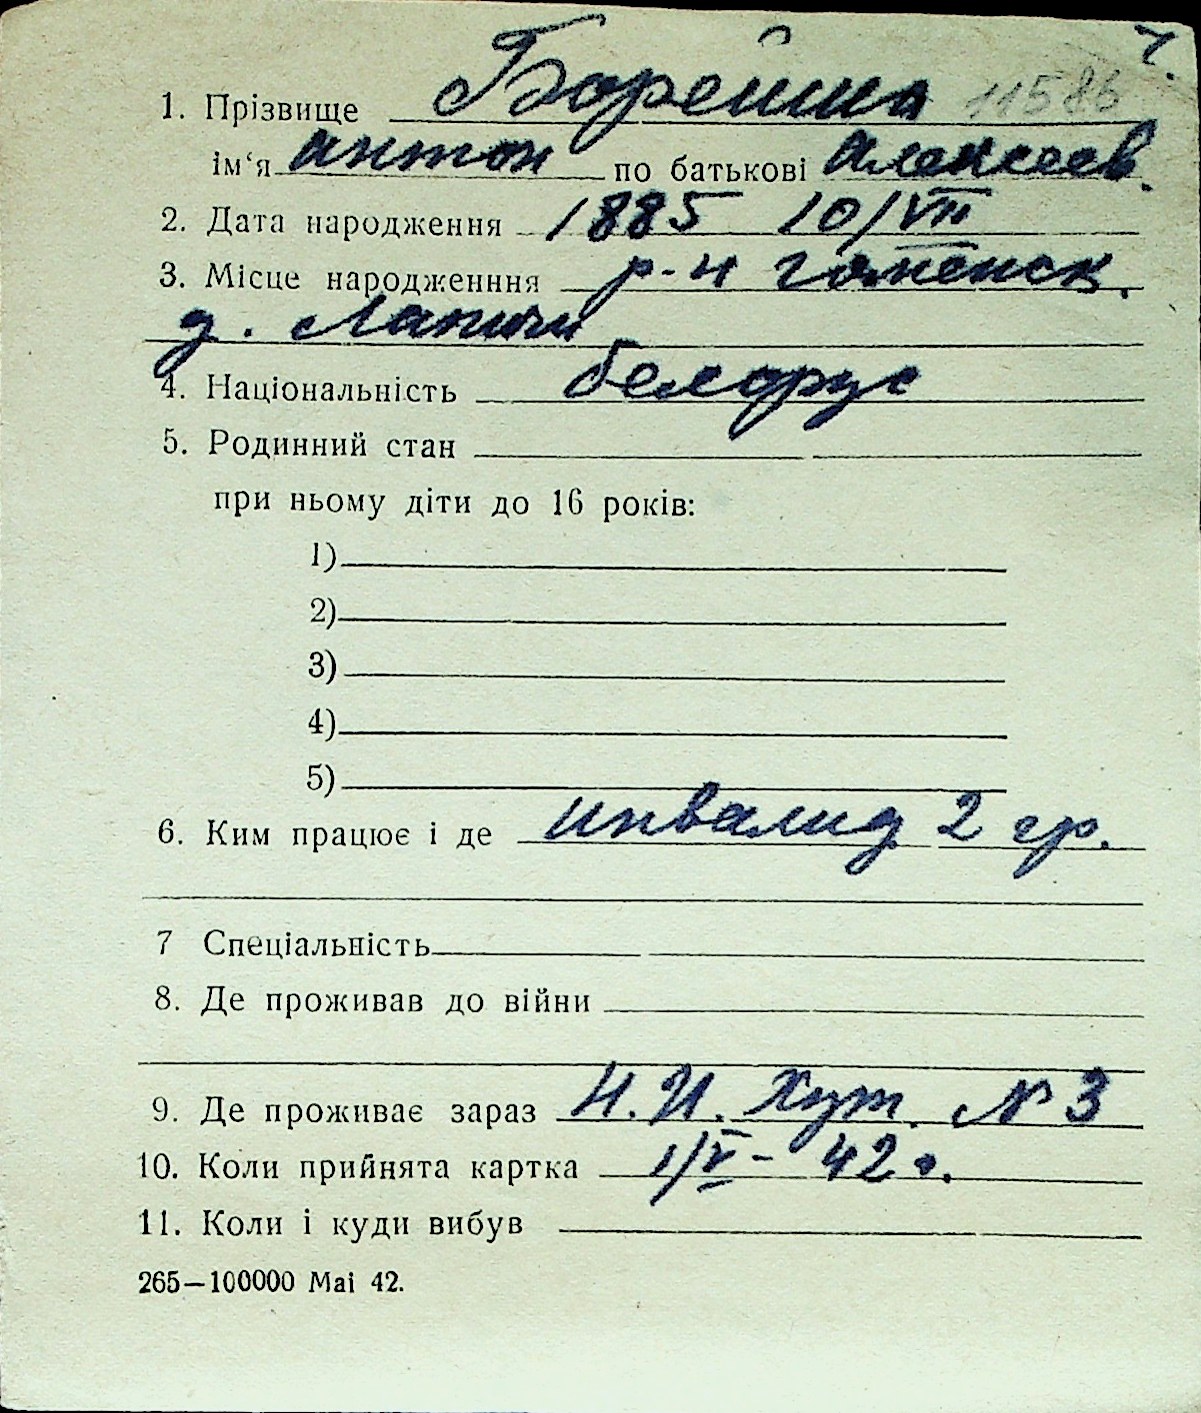 ч.
1. Прізвище Борейша 11586
ім‘я антон по батькові Алексеев.
2. Дата народження 1885 10/VII
3. Місце народженння р-н гоменск.
д. Лапичи
4. Національність белорус
5. Родинний стан
при ньому діти до 16 років:
1)
2)
3)
4)
5)
6. Ким працює і де инвалид 2 гр.
7 Спеціальність
8. Де проживав до війни
9. Де проживає зараз Н.И. Хут. № 3
10. Коли прийнята картка 1/V - 42 г.
11. Коли і куди вибув
265—100000 Маі 42.